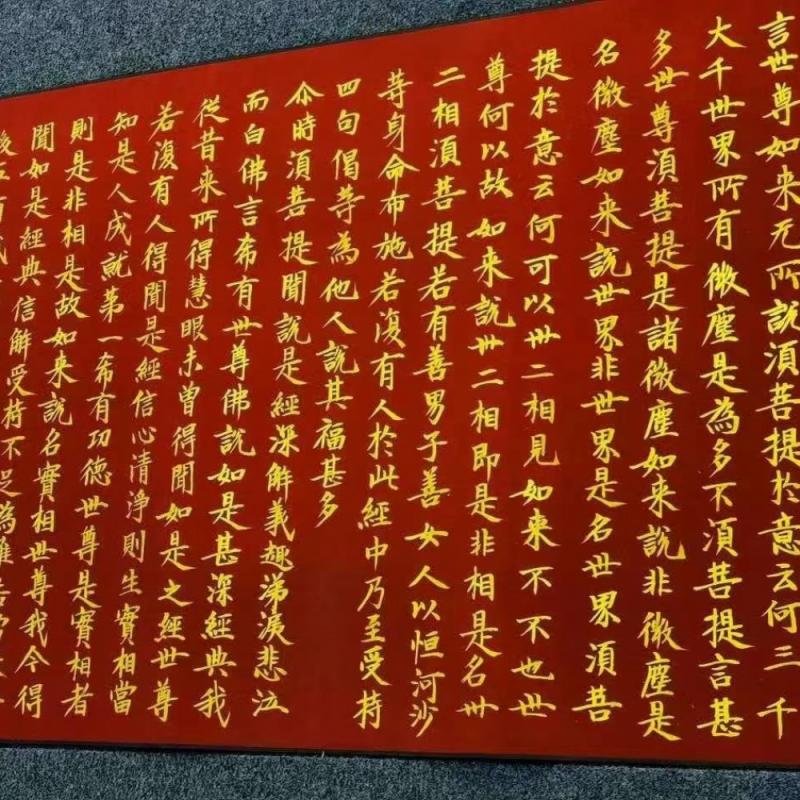 言世尊如来无所說湏菩提於意云何三千
大千世界所有微塵是為多不湏菩提言甚
多世尊湏菩提是諸微塵如来說非微塵是
名微塵如来說世界非世界是名世界湏菩
提於意云何可以卅二相見如来不不也世
尊何以故如来說卅二相即是非相是名卅
二相湏菩提若有善男子善女人以恒河沙
等身命布施若復有人於此經中乃至受持
四句偈等為他人說其福甚多
尒時湏菩提聞說是經深解義趣涕淚悲泣
而白佛言希有世尊佛說如是甚深經典我
從昔来所得慧眼未曾得聞如是之經世尊
若復有人得聞是經信心清淨則生實相當
知是人成就第一希有功德世尊是實相者
則是非相是故如来說名實相世尊我今得
聞如是經典信解受持不足為難若當